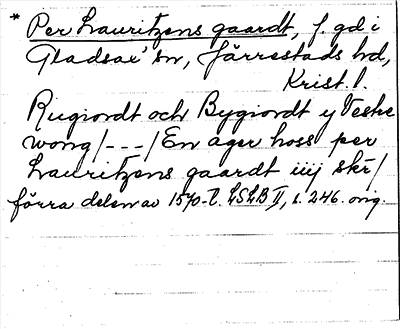 * Per Lauritzens gaardt, f. gd i
Gladsax' sn, Järrestads hd,
Krist. l.
Rugiordt och Bygiordt y Veske
wong /---/ En ager hoss per
Lauritzens gaardt iiij skr /
förra delen av 1570-t. LSLB II, s. 246. orig.